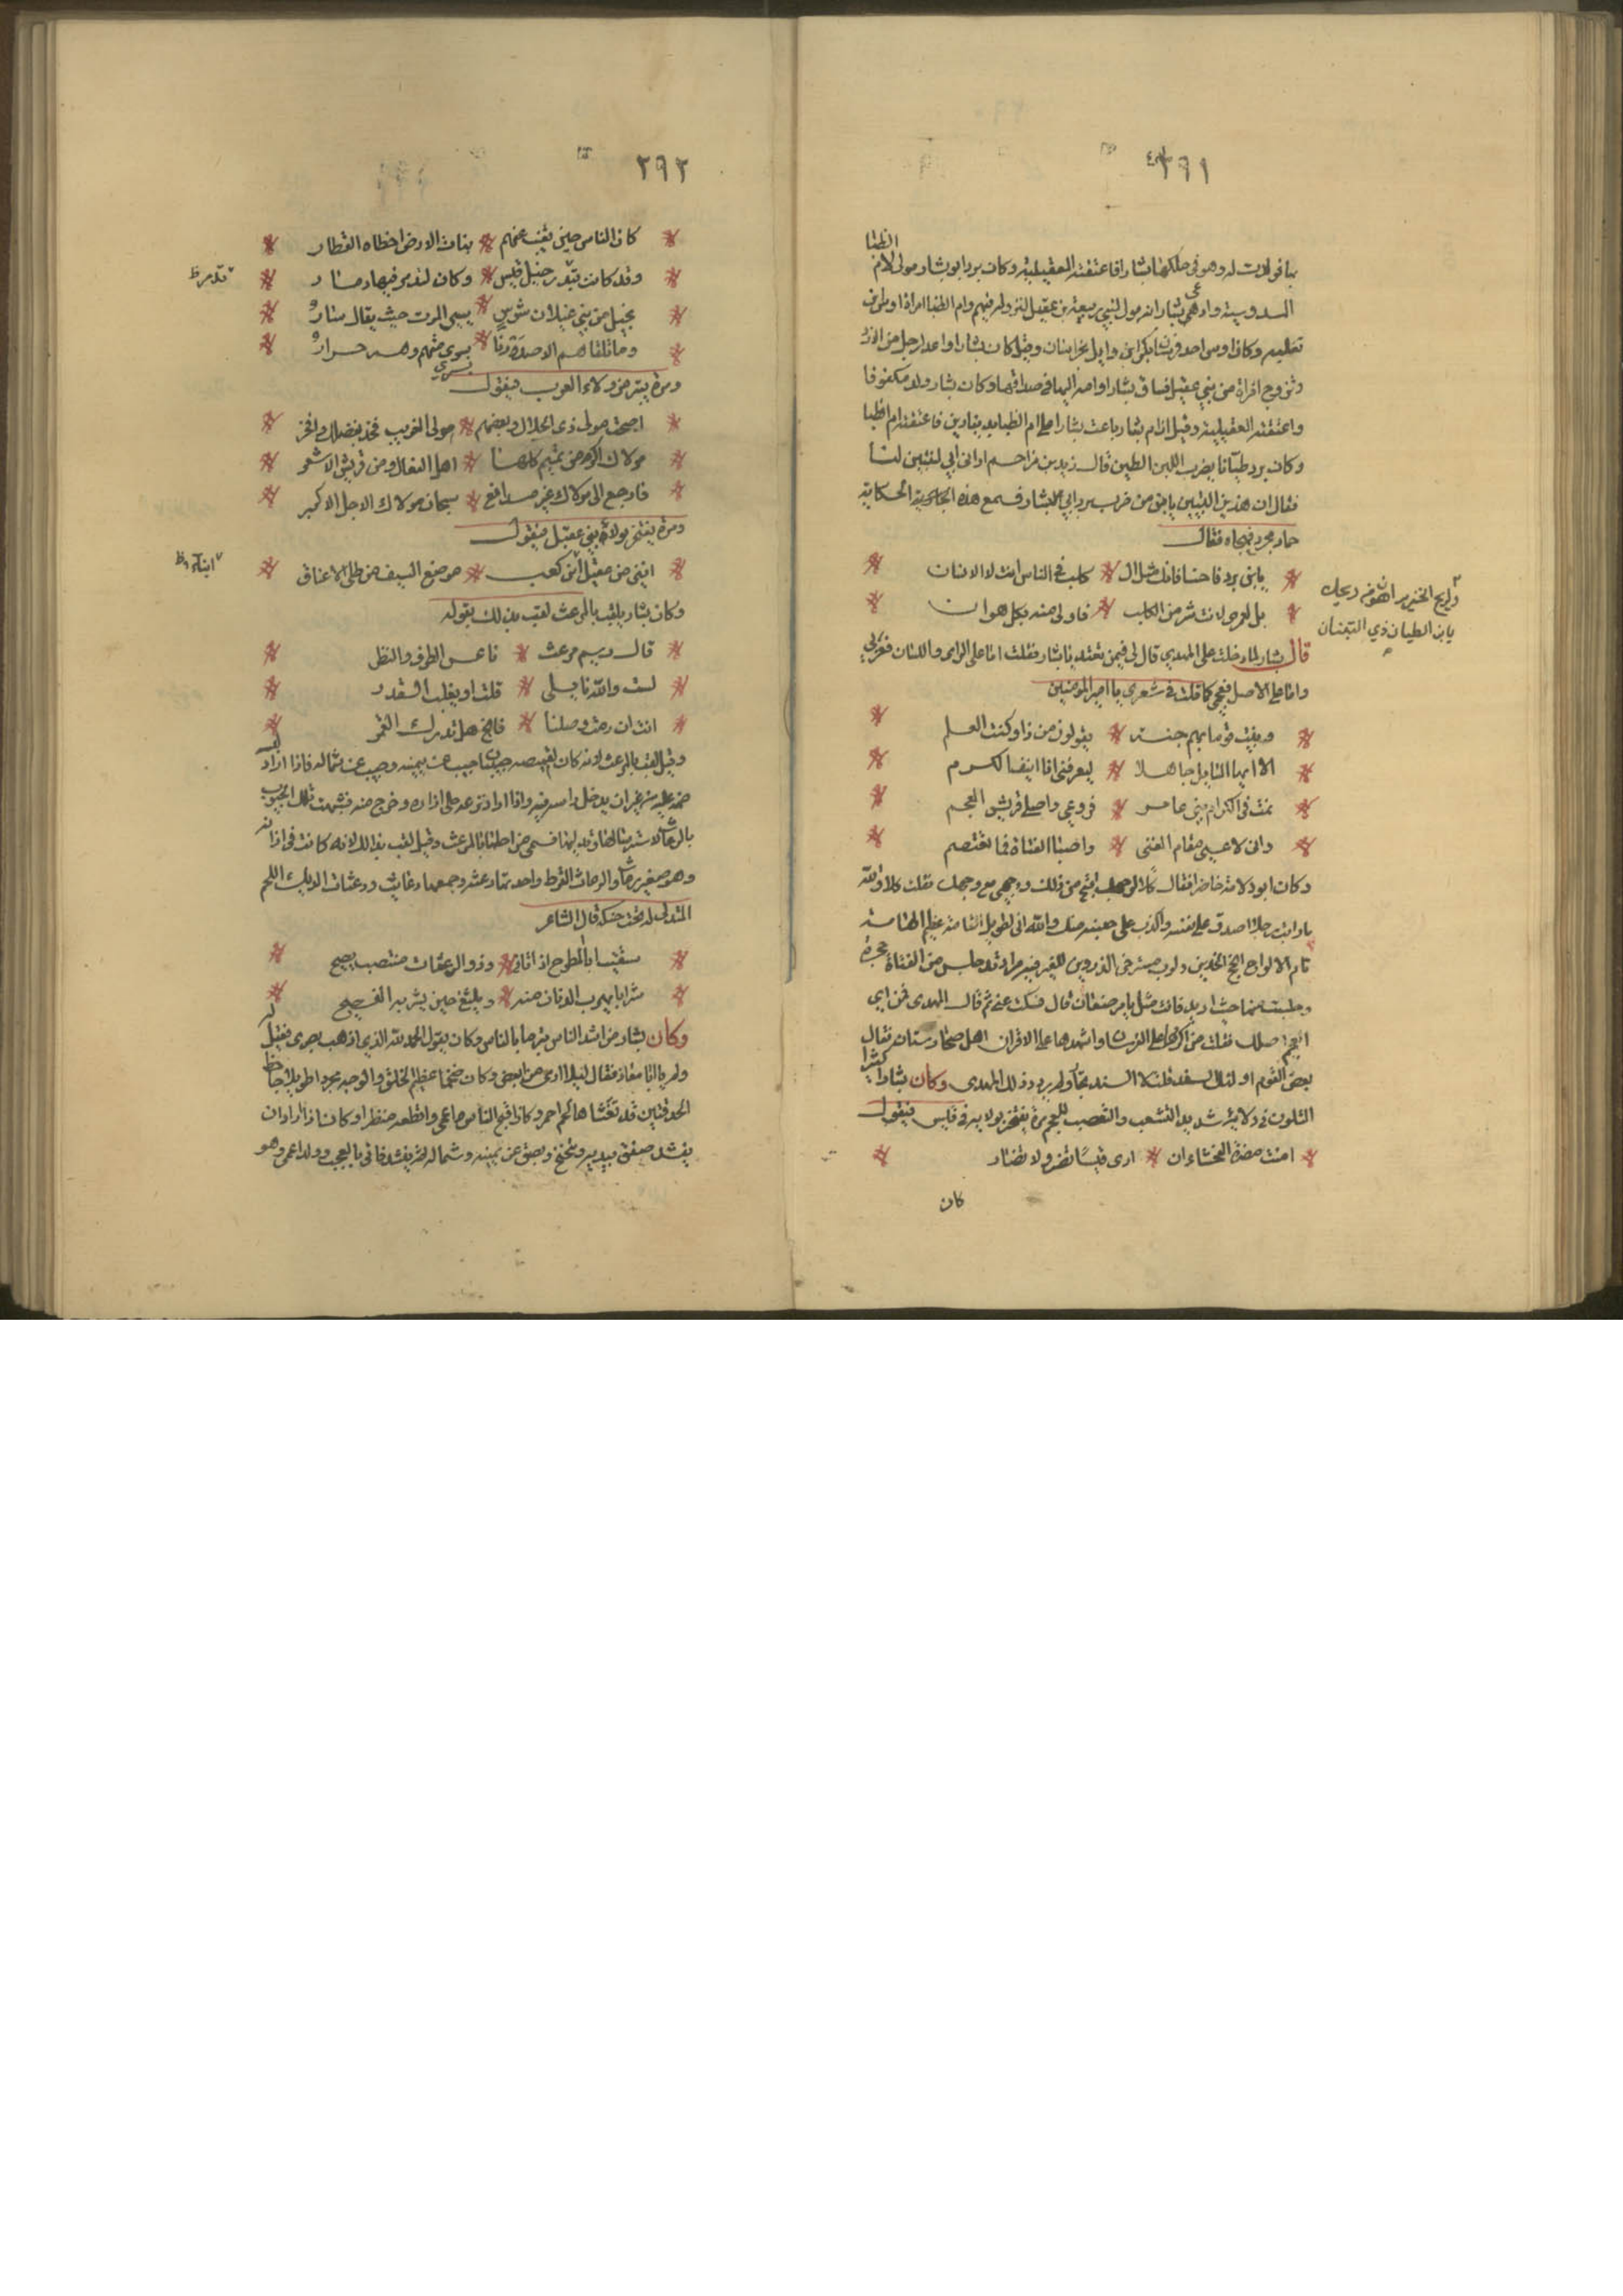 ٣٦١
بها فولدت له وهو في ملكها بشارا فاعتقته العقيلية وكان برد ابو بشار مولى لام الظبا
السدوسية وادعى بشار انه مولى لبني ربيعة بن عقيل لنزوله فيهم وام الظبا امراة اوس بن
ثعلبة وكان اوس احد فرسان بكر بن وايل بخراسان وقيل كان بشار واعد لرجل من الازد
وتزوج امراة من بني عقيل فساق بشارا وامه اليها في صداقها وكان بشار ولد مكفوفا
واعتقته العقيلية وقيل ان ام بشار باعت بشارا على ام الظبا بدينارين فاعتقته ام الظبا
وكان برد طيانا يضرب اللبن الطين قال زيد بن مزاحم اراني ابي لبنتين لنا
فقال ان هذين اللبنتين يا بني من ضرب برد ابي بشار فسمع هذه الحكاية
حماد عجرد فهجاه فقال
يابن برد اخسا فانك مثل ال كلب في الناس انت لا الانسان
بل لعمري لانت شر من الكلب فاولى منه بكل هوان
ولريح الخنزير اهون من ريحك
يابن الطيان ذي التبنان
قال بشار لما دخلت على المهدي قال لي فيمن تعتد يا بشار فقلت اما على الزي واللسان فعربي
واما على الاصل فعجمي كما قلت في شعري يا امير المومنين
ونبيت قوما بهم جنة يقولون من ذا وكنت العلم
الا ايها السايل جاهلا ليعرفني انا انف الكرم
نمت في الكرام بني عامر فروعي واصلي قريش العجم
واني لاغني مقام الفتى واصبي الفتاة فما تعتصم
وكان ابو دلامة حاضرا فقال كلا لوجهك اقبح من ذلك ووجهي مع وجهك فقلت كلا والله
ما رايت رجلا اصدق على نفسه واكذب على جليسه منك والله اني لطويل القامة عظيم الهامة
تام الالواح اسجح الخدين ولرب مسترخي المذروين للعين فيه مراد قد جلس من الفتاة حجرة
وجلست منها حيث اريد فانت مثلي يا مرضعان قال فسكت عني ثم قال المهدي فمن اي
العجم اصلك فقلت من اكثرها على الفرسان واشدها على الاقران اهل طخارستان فقال
بعض القوم اولئك السغد فقلت لا السغد تجار ولم يردد ذلك المهدي وكان بشار كثير
التلون في ولائه شديد التشعب والتعصب للعجم مرة يفتخر بولايه في قيس فيقول
امنت مضرة الفحشاء ان ارى قيسا تضر ولا تضار
كان
٣٦٢
كان الناس حين تغيب عنهم بنات الارض اخطاه القطار
وقد كانت بتدمر خيل قيس وكان لتدمر فيها دمار
بتدمر ظ
بخيل من بني عيلان شوس يسير الموت حيث يقال ساروا
وما نلقاهم الا صدرنا بري منهم وهم حرار
ومرة يتبرا من ولاء العرب فيقول
اصبحت مولى ذي الجلال وبعضهم مولى العريب فخذ بفضلك وافخر
مولاك اكرم من تميم كلها اهل الفعال ومن قريش الاشعر
فارجع الى مولاك غير مدافع سبحان مولاك الاجل الاكبر
ومرة يفتخر بولاء بني عقيل فيقول
انني من عقيل ابن كعب موضع السيف من طلى الاعناق
وكان بشار يلقب بالمرعث لقب بذلك بقوله
قال ريم مرعث ناعس الطرف والنظر
لست والله نايلي قلت او يغلب القدر
انت ان رمت وصلنا فانج هل تدرك القمر
وقيل لقب بالمرعث لانه كان لقميصه جيبان جيب عن يمينه وجيب عن شماله فاذا اراد لبسه
ضمه عليه من غير ان يدخل راسه فيه واذا اراد نزعه حل ازراره وخرج منه فشبهت تلك الجيوب
بالرعاث لاسترسالها وتدليها فسمى من اجلها بالمرعث وقيل لقب بذلك لانه كانت في اذانه
وهو صغير رعاث والرعاث القرط واحدتها رعثة وجمعها رعاث ورعثات الديك اللحم
المتدلى له تحت حنكه قال الشاعر
سقيت ابا المطوح اذ اتاني وذو الرعثات منتصب يصيح
شرابا يهرب الذبان منه ويلثغ حين يشربه الفصيح
وكان بشار من اشد الناس تبرما بالناس وكان يقول الحمد لله الذي اذهب بصري فقيل له
ولم يا ابا معاذ فقال لئلا ارى من ابغض وكان ضخما عظيم الخلق والوجه مجدرا طويلا جاحظ
الحدقتين قد تغشاها لحم احمر وكان اقبح الناس عمى وافظعه منظرا وكان اذا اراد ان
ينشد صفق بيديه وتنحنح وبصق عن يمينه وشماله ثم ينشد فاتى بالعجب وولد اعمى وهو